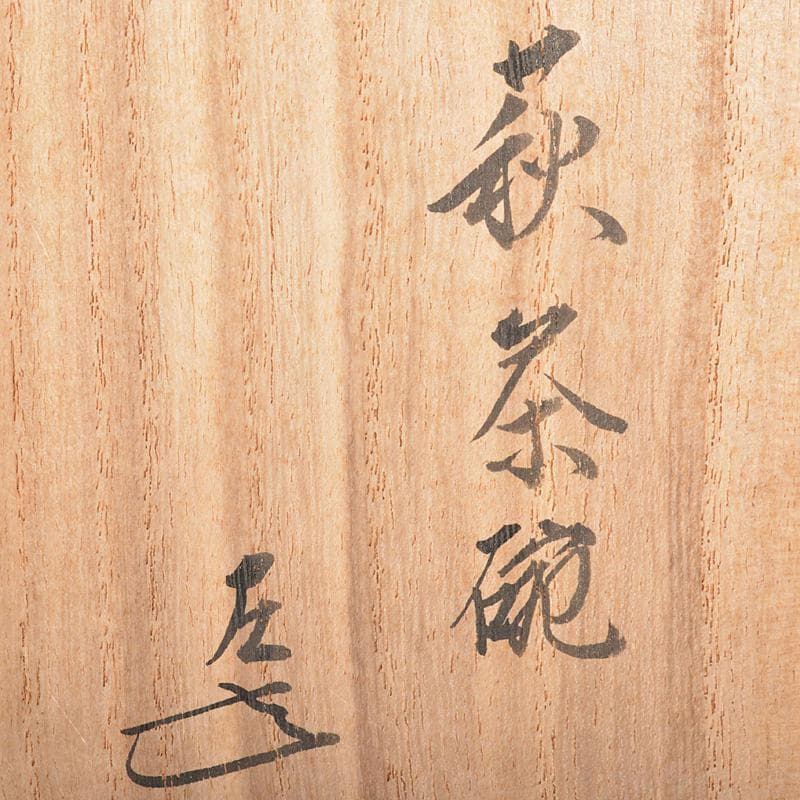 萩茶碗
左